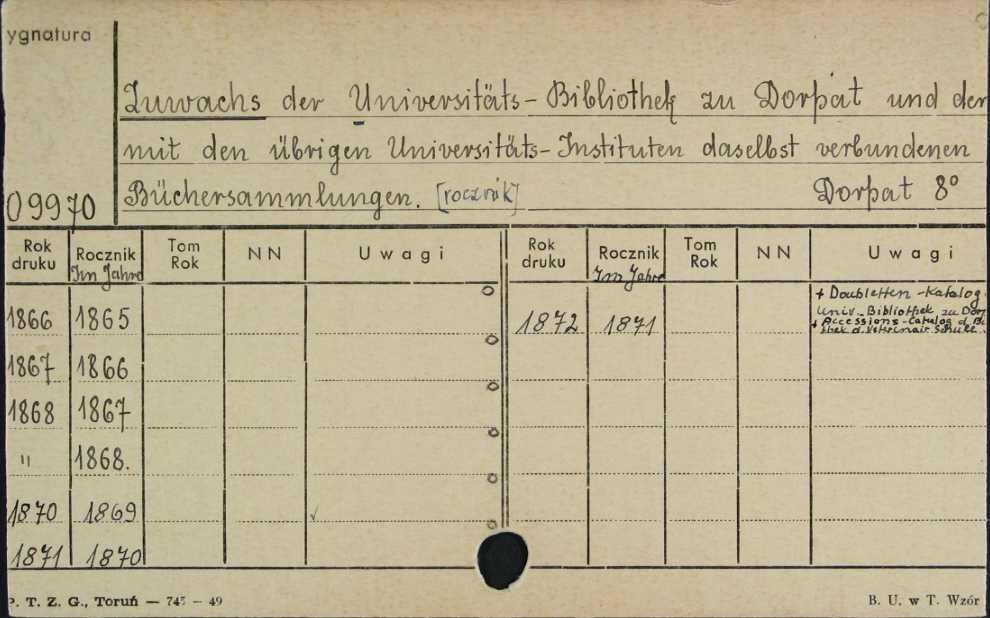 ygnatura
Zuwachs der Universitäts-Bibliothek zu Dorpat und der
mit den übrigen Universitäts-Instituten daselbst verbundenen
09970 Büchersammlungen. [rocznik] Dorpat 8°
Rok druku Rocznik Im Jahre Tom Rok NN Uwagi Rok druku Rocznik Im Jahre Tom Rok NN Uwagi
+ Doubletten-Katalog
Univ.-Bibliothek zu Dorp
1866 1865 1872 1871 + Accessions-Catalog d. Bi
thek d. Veterinair Schule
1867 1866
1868 1867
" 1868.
1870 1869
1871 1870
P. T. Z. G., Toruń — 745 — 49 B. U. w T. Wzór